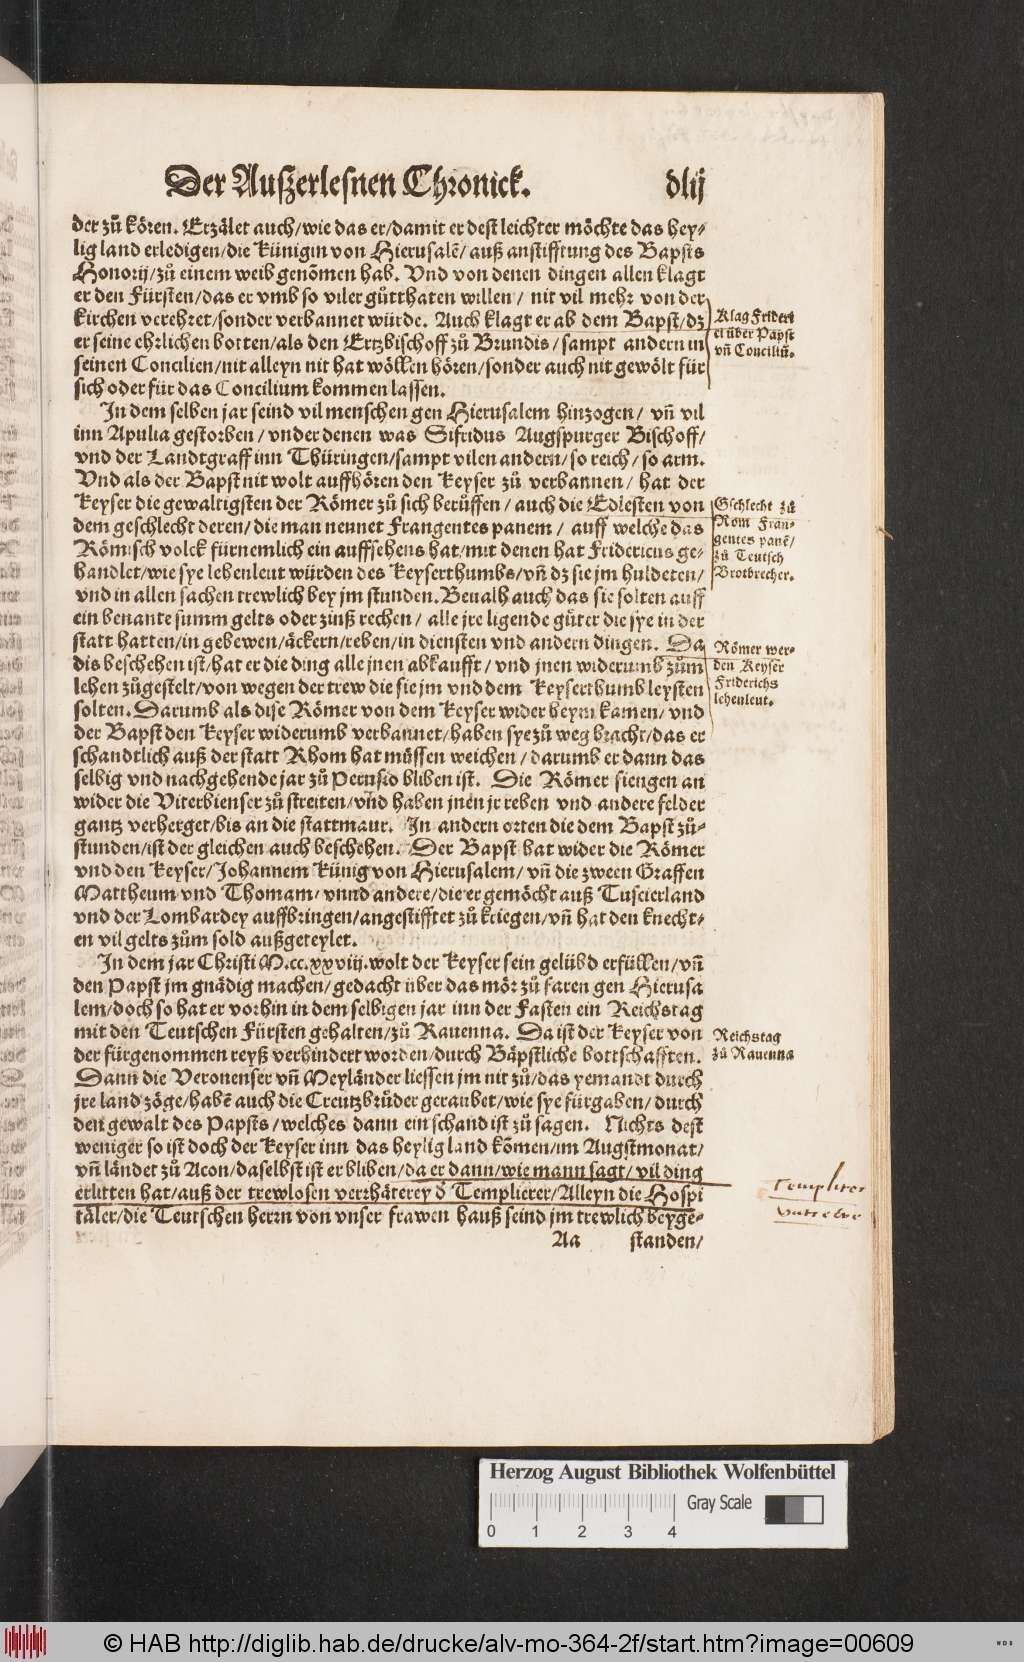 Der Außerlesnen Chronick. dlij
der zů kören. Erzälet auch/wie das er/damit er dest leichter möchte das hey-
lig land erledigen/die Künigin von Hierusalẽ/auß anstifftung des Bapsts
Honorij/zů einem weib genõmen hab. Vnd von denen dingen allen klagt
er den Fürsten/das er vmb so viler gůtthaten willen/ nit vil mehr von der
kirchen verehret/sonder verbannet würde. Auch klagt er ab dem Bapst/dz
er seine ehrlichen botten/als den Ertzbischoff zů Brundis/sampt andern in
seinen Concilien/nit alleyn nit hat wöllen hören/sonder auch nit gewölt für
sich oder für das Concilium kommen lassen.
Klag Frideri
ci über Papst
vñ Conciliũ.
In dem selben jar seind vil menschen gen Hierusalem hinzogen/ vñ vil
inn Apulia gestorben/vnder denen was Sifridus Augspurger Bischoff/
vnd der Landtgraff inn Thüringen/sampt vilen andern/so reich/so arm.
Vnd als der Bapst nit wolt auffhören den Keyser zů verbannen/ hat der
Keyser die gewaltigsten der Römer zů sich berüffen/auch die Edlesten von
dem geschlecht deren/die man nennet Frangentes panem/ auff welche das
Römisch volck fürnemlich ein auffsehens hat/mit denen hat Fridericus ge-
handlet/wie sye lehenleut würden des Keyserthumbs/vñ dz sie jm huldeten/
vnd in allen sachen trewlich bey jm stunden. Beualh auch das sie solten auff
ein benante summ gelts oder zinß rechen/ alle jre ligende güter die sye in der
statt hatten/in gebewen/äckern/reben/in diensten vnd andern dingen. Da
dis beschehen ist/hat er die ding alle jnen abkaufft/vnd jnen widerumb zům
lehen zůgestelt/von wegen der trew die sie jm vnd dem Keyserthumb leysten
solten. Darumb als dise Römer von dem Keyser wider heym kamen/vnd
der Bapst den Keyser widerumb verbannet/haben sye zů weg bracht/das er
schandtlich auß der statt Rhom hat müssen weichen/darumb er dann das
selbig vnd nachgehende jar zů Perusio bliben ist. Die Römer fiengen an
wider die Viterbienser zů streiten/vnd haben jnen jr reben vnd andere felder
gantz verherget/bis an die stattmaur. In andern orten die dem Bapst zů-
stunden/ist der gleichen auch beschehen. Der Bapst hat wider die Römer
vnd den Keyser/Johannem Künig von Hierusalem/vñ die zween Graffen
Mattheum vnd Thomam/vnnd andere/die er gemöcht auß Tuscierland
vnd der Lombardey auffbringen/angestifftet zů kriegen/vñ hat den knecht-
en vil gelts zům sold außgeteylet.
Gschlecht zů
Rom Fran-
gentes panẽ/
zů Teutsch
Brotbrecher.
Römer wer-
den Keyser
Friderichs
lehenleut.
In dem jar Christi M.cc.xxviij.wolt der Keyser sein gelübd erfüllen/vñ
den Papst jm gnädig machen/gedacht über das mör zů faren gen Hierusa
lem/doch so hat er vorhin in dem selbigen jar inn der Fasten ein Reichstag
mit den Teutschen Fürsten gehalten/zů Rauenna. Da ist der Keyser von
der fürgenommen reyß verhindert worden/durch Bäpstliche bottschafften.
Dann die Veronenser vñ Meyländer liessen jm nit zů/das yemandt durch
jre land zöge/habẽ auch die Creutzbrůder geraubet/wie sye fürgaben/durch
den gewalt des Papsts/welches dann ein schand ist zů sagen. Nichts dest
weniger so ist doch der Keyser inn das heylig land kõmen/im Augstmonat/
vñ ländet zů Acon/daselbst ist er bliben/da er dann/wie mann sagt/vil ding
erlitten hat/auß der trewlosen verrhäterey d̃ Templierer/Alleyn die Hospi
täler/die Teutschen herrn von vnser frawen hauß seind jm trewlich beyge-
Aa standen/
Reichstag
zů Rauenna
Templirer
© HAB http://diglib.hab.de/drucke/alv-mo-364-2f/start.htm?image=00609
Herzog August Bibliothek Wolfenbüttel
Gray Scale
0 1 2 3 4